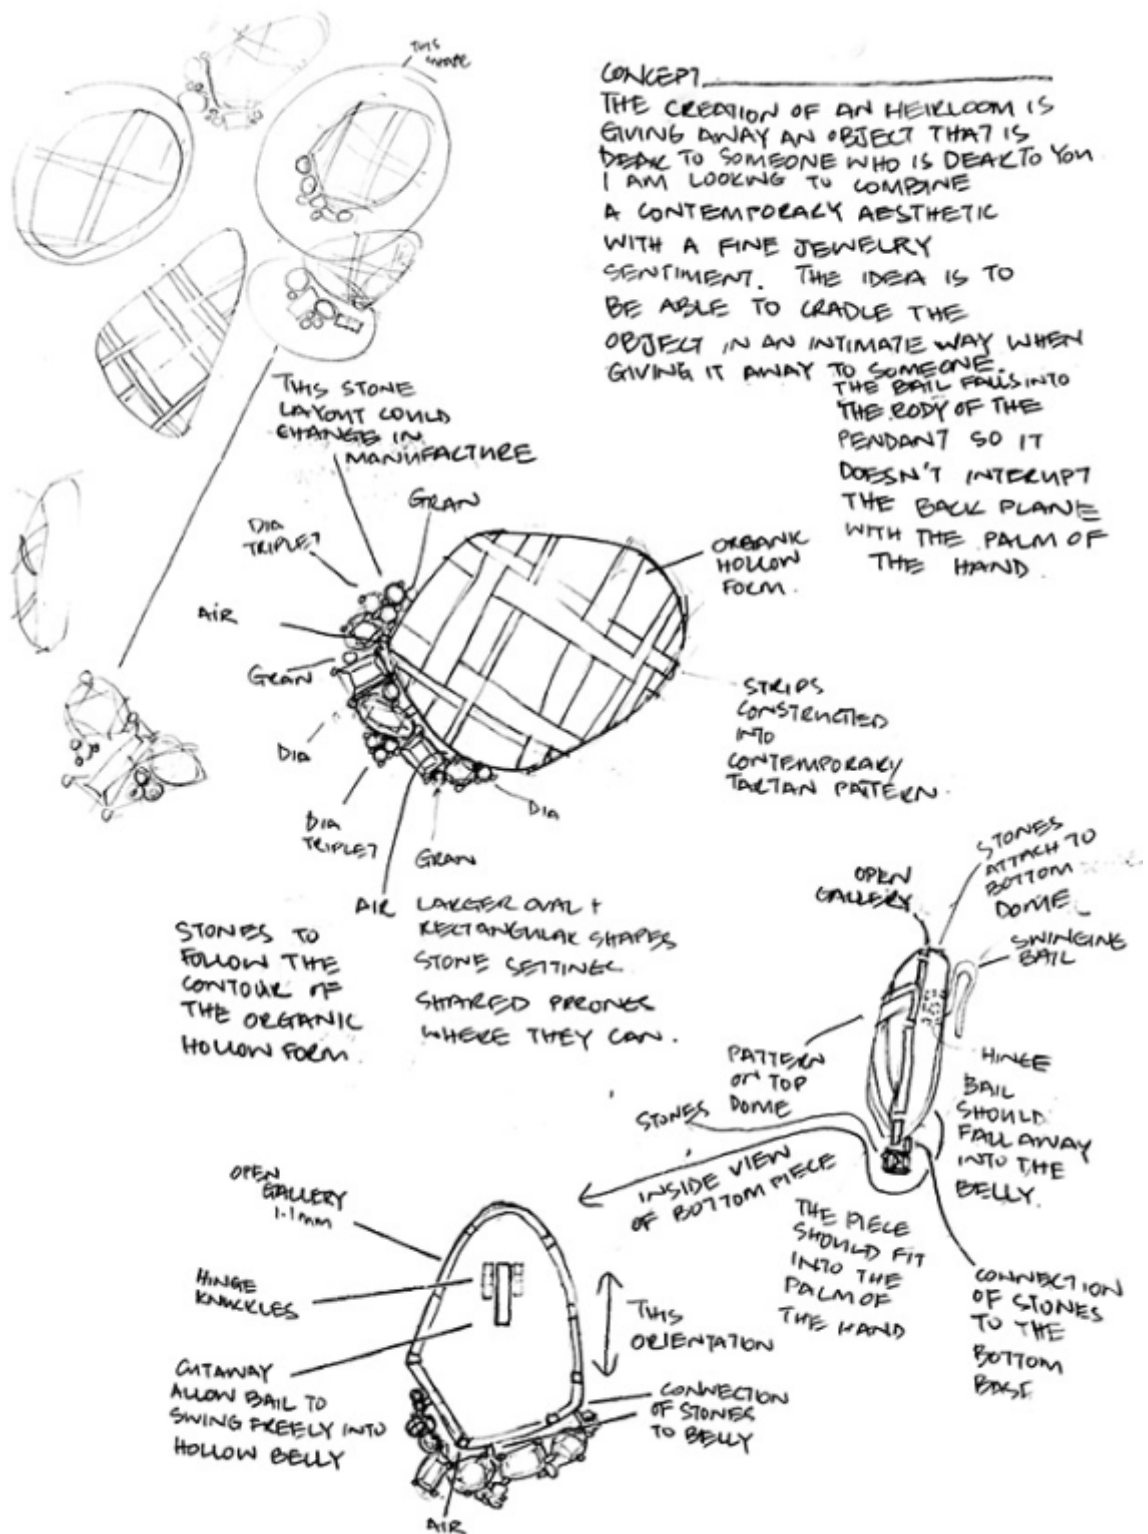 THIS
SHAPE
CONCEPT
THE CREATION OF AN HEIRLOOM IS
GIVING AWAY AN OBJECT THAT IS
DEAR TO SOMEONE WHO IS DEAR TO YOU
I AM LOOKING TO COMBINE
A CONTEMPORARY AESTHETIC
WITH A FINE JEWELRY
SENTIMENT. THE IDEA IS TO
BE ABLE TO CRADLE THE
OBJECT IN AN INTIMATE WAY WHEN
GIVING IT AWAY TO SOMEONE.
THE BAIL FALLS INTO
THE BODY OF THE
PENDANT SO IT
DOESN'T INTERUPT
THE BACK PLANE
WITH THE PALM OF
THE HAND.
THIS STONE
LAYOUT COULD
CHANGE IN
MANUFACTURE
GRAN
DIA
TRIPLET
AIR
GRAN
DIA
DIA
TRIPLET
GRAN
DIA
AIR
ORGANIC
HOLLOW
FORM.
STRIPS
CONSTRUCTED
INTO
CONTEMPORARY
TARTAN PATTERN.
STONES TO
FOLLOW THE
CONTOUR OF
THE ORGANIC
HOLLOW FORM.
LARGER OVAL +
RECTANGULAR SHAPES
STONE SETTINGS
SHARED PRRONGS
WHERE THEY CAN.
OPEN
GALLERY
STONES
ATTACH TO
BOTTOM
DOME
SWINGING
BAIL
PATTERN
ON TOP
DOME
HINGE
BAIL
SHOULD
FALL AWAY
INTO THE
BELLY.
STONES
INSIDE VIEW
OF BOTTOM PIECE
THE PIECE
SHOULD FIT
INTO THE
PALM OF
THE HAND
CONNECTION
OF STONES
TO THE
BOTTOM
BASE
OPEN
GALLERY
1.1mm
HINGE
KNUCKLES
THIS
ORIENTATION
CUTAWAY
ALLOW BAIL TO
SWING FREELY INTO
HOLLOW BELLY
CONNECTION
OF STONES
TO BELLY
AIR